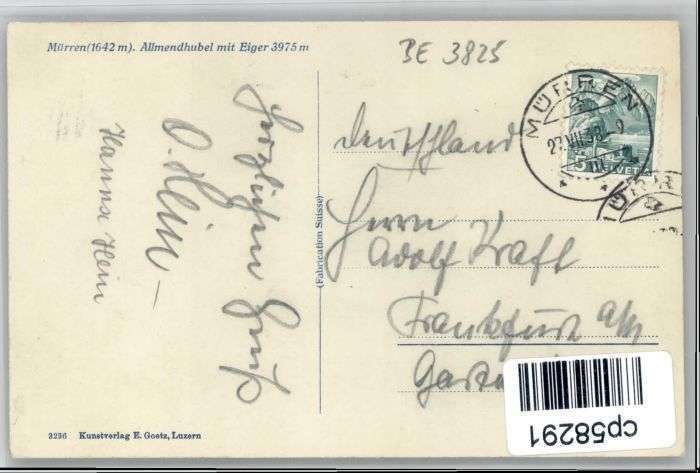 Mürren (1642 m). Allmendhubel mit Eiger 3975 m
BE 3825
MÜRREN
27.VII.38.-9
5
HELVETIA
Herzlichen Gruß
O. Hein –
Hanna Hein
(Fabrication Suisse)
Deutschland
Herrn
Adolf Kraft
Frankfurt a/M
3236 Kunstverlag E. Goetz, Luzern
cp58291